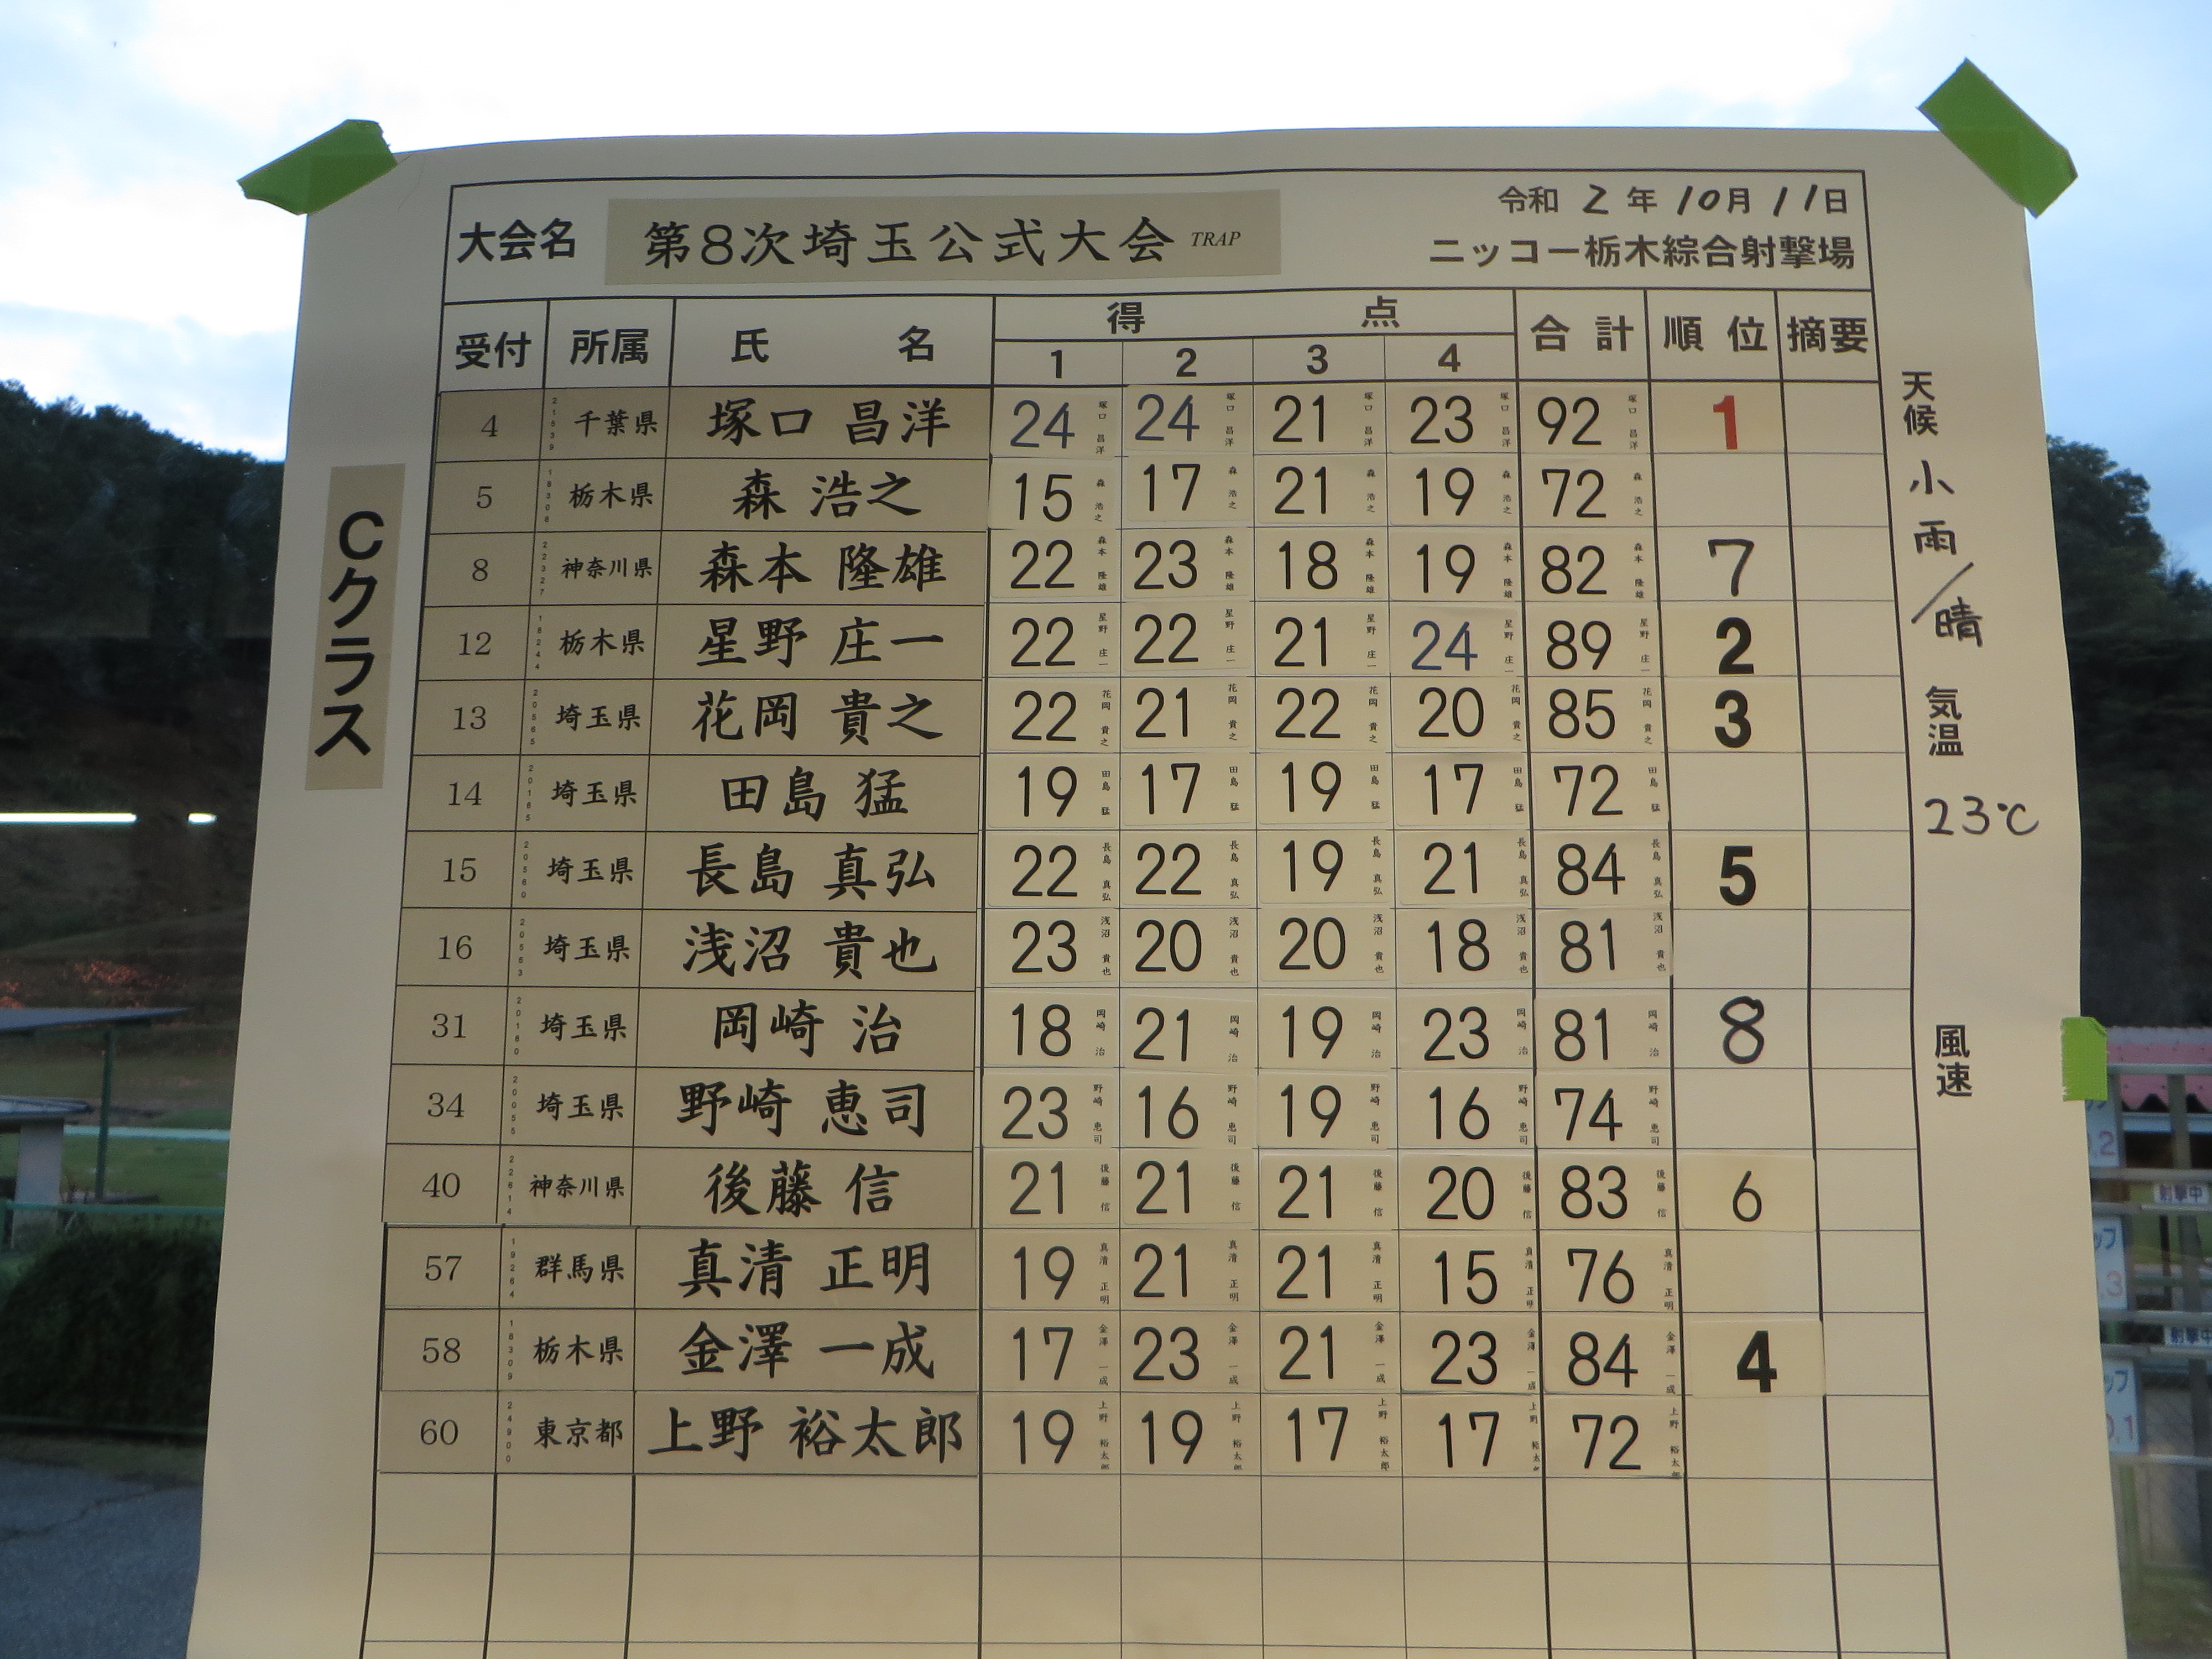 令和 2 年 10月 11日
大会名 第8次埼玉公式大会 TRAP
ニッコー栃木綜合射撃場
Cクラス
受付 所属 氏 名 得 点 合計 順位 摘要
1 2 3 4
4 千葉県 塚口 昌洋 24 24 21 23 92 1
5 栃木県 森 浩之 15 17 21 19 72
8 神奈川県 森本 隆雄 22 23 18 19 82 7
12 栃木県 星野 庄一 22 22 21 24 89 2
13 埼玉県 花岡 貴之 22 21 22 20 85 3
14 埼玉県 田島 猛 19 17 19 17 72
15 埼玉県 長島 真弘 22 22 19 21 84 5
16 埼玉県 浅沼 貴也 23 20 20 18 81
31 埼玉県 岡崎 治 18 21 19 23 81 8
34 埼玉県 野崎 恵司 23 16 19 16 74
40 神奈川県 後藤 信 21 21 21 20 83 6
57 群馬県 真清 正明 19 21 21 15 76
58 栃木県 金澤 一成 17 23 21 23 84 4
60 東京都 上野 裕太郎 19 19 17 17 72
天候 小雨/晴
気温 23℃
風速
射撃中
射撃中